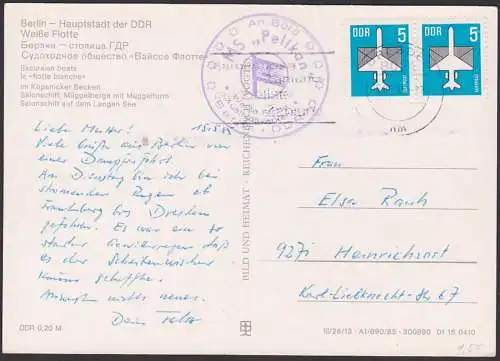 Berlin – Hauptstadt der DDR
Weiße Flotte
Берлин – столица ГДР
Судоходное общество «Вайссе Флотте»
Excursion boats
le «flotte blanche»
im Köpenicker Becken
Salonschiff, Müggelberge mit Müggelturm
Salonschiff auf dem Langen See
An Bord
MS „Pelikan
DDR 5
DDR 5
Liebe Mutter! 15.5.
Viele Grüße aus Berlin von
einer Dampferfahrt
Am Dienstag bin ich bei
strömendem Regen ab
bis Dresden
gefahren. Es war ein so
starker Gewitterregen daß
es der Scheibenwischer
kaum schaffte.
nichts neues.
Dein
Frau
Elsa Rauh
9271 Heinrichsort
Karl-Liebknecht-Str 67
BILD UND HEIMAT · REICHENBACH
DDR 0,20 M
A1/690/85 · 300690 01 15 0410